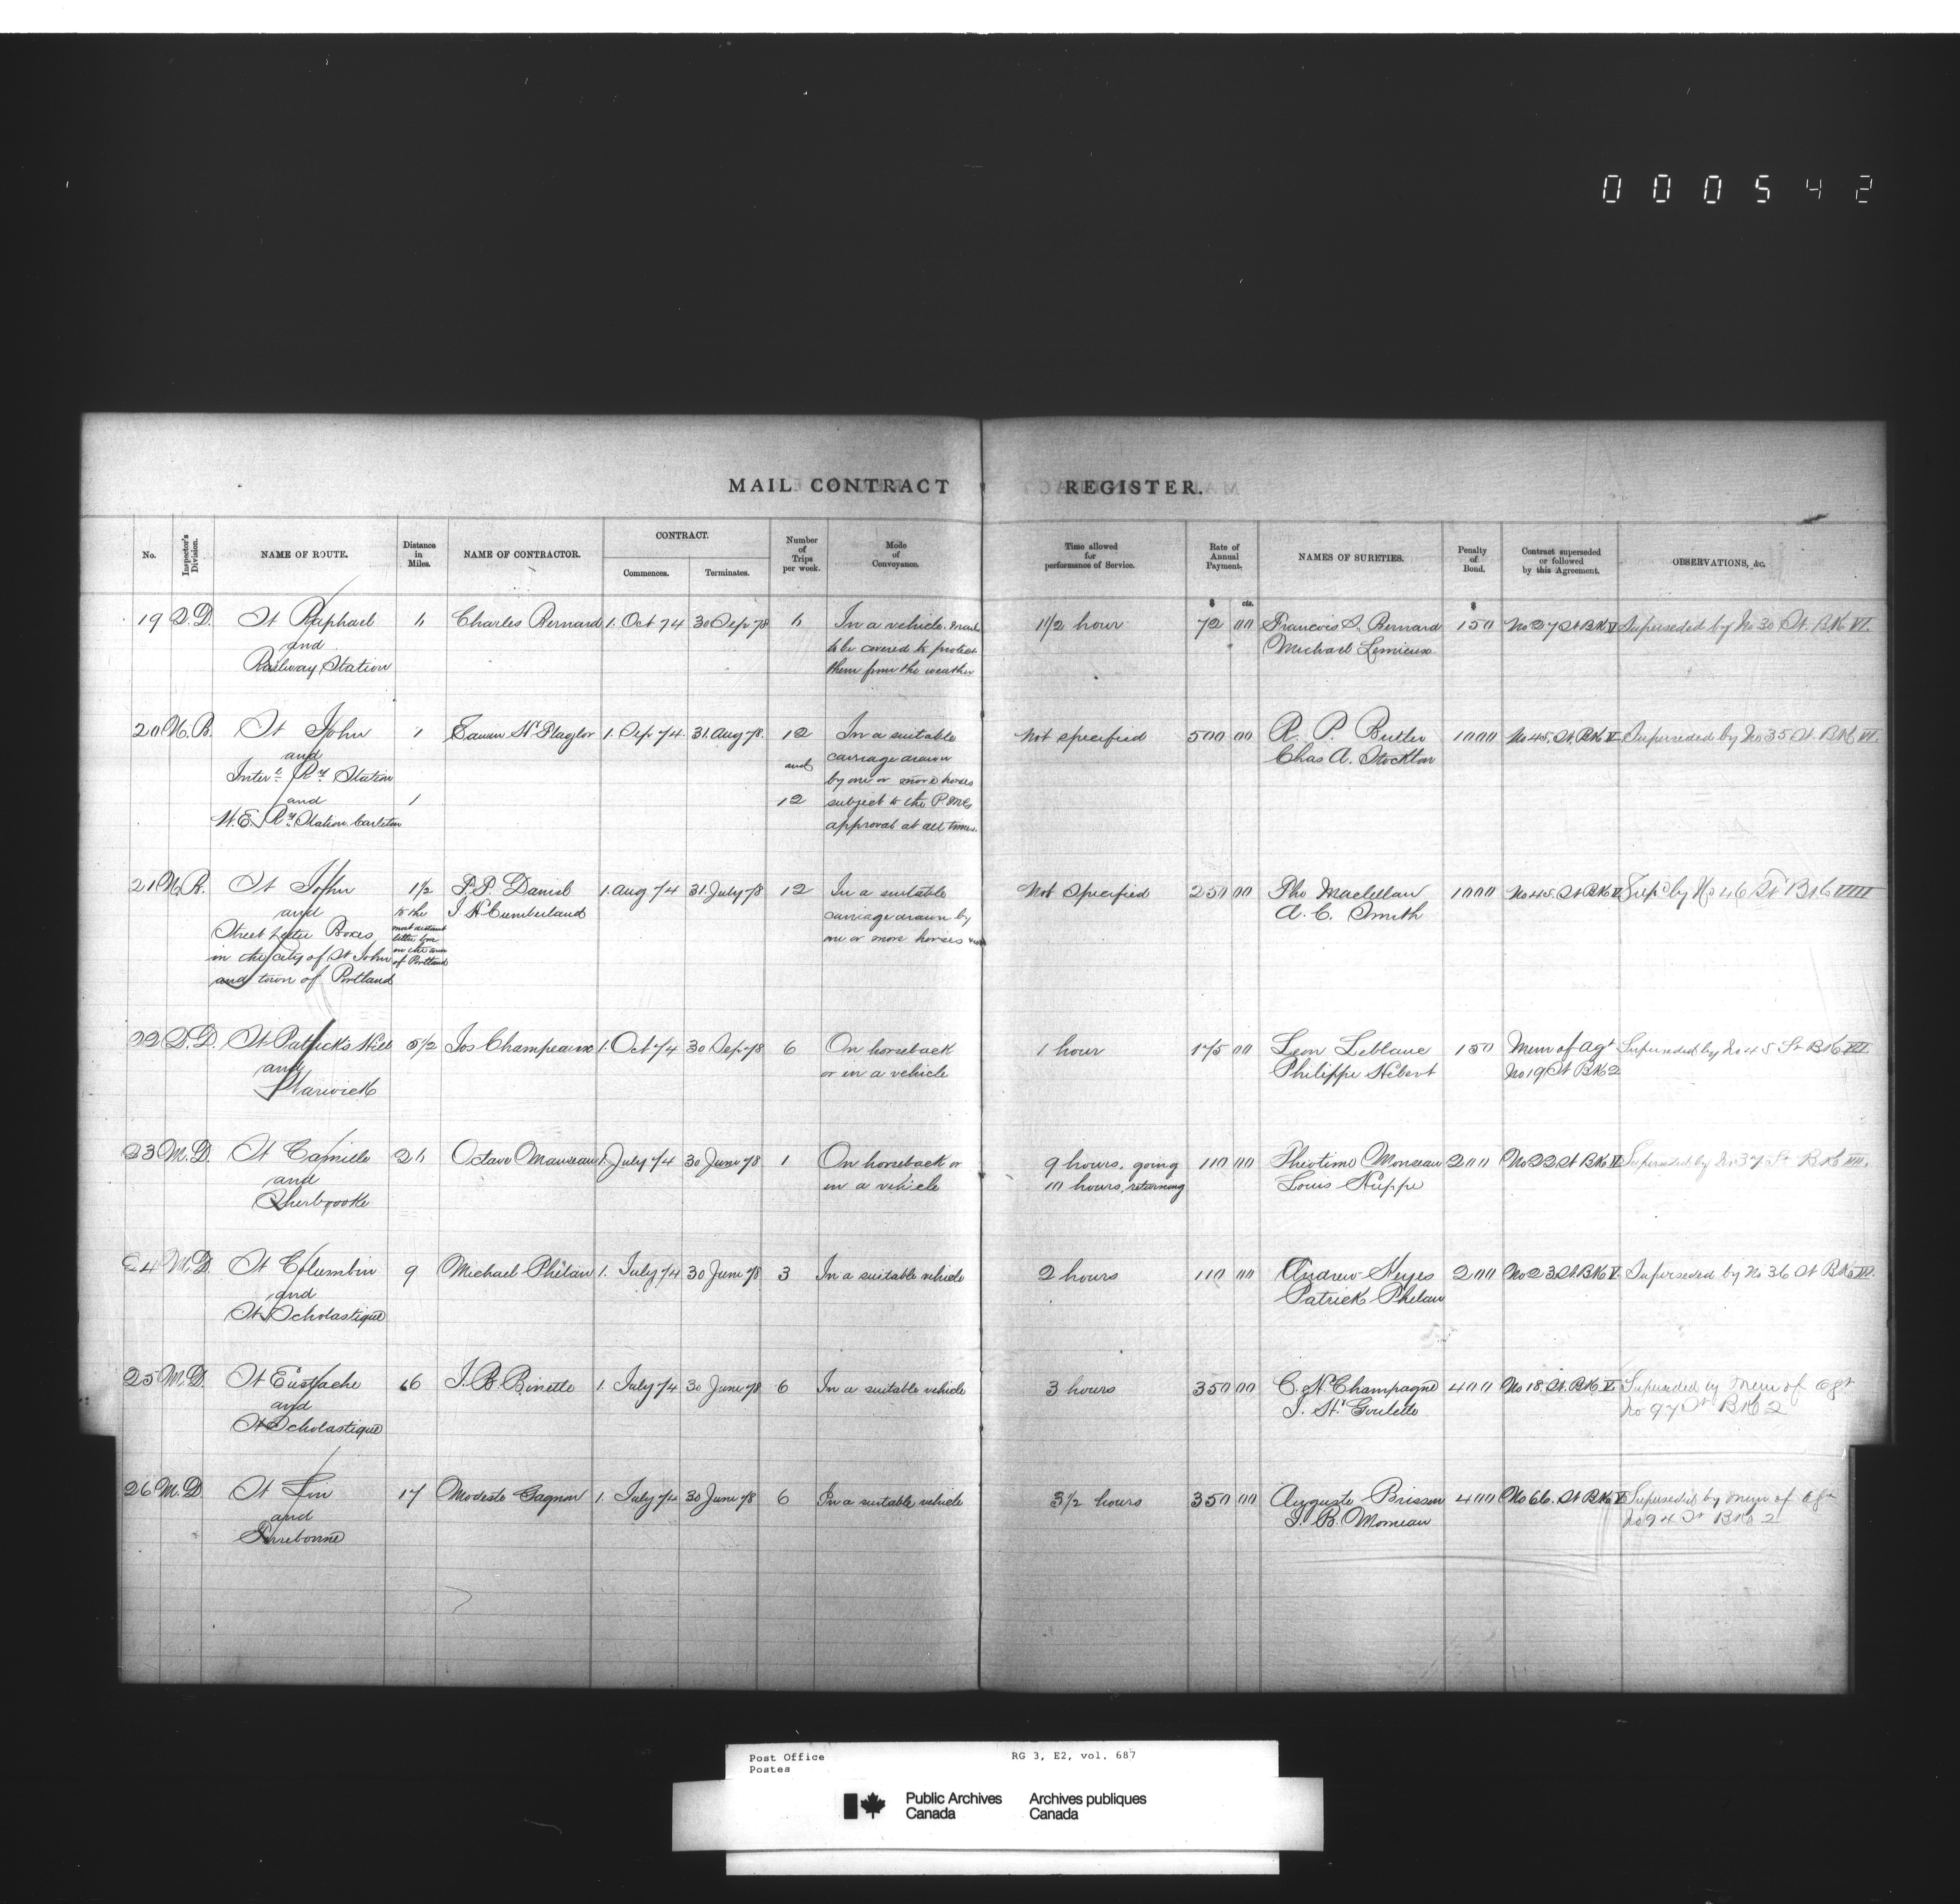 000542
MAIL CONTRACT REGISTER.
No. Inspector's Division. NAME OF ROUTE. Distance in Miles. NAME OF CONTRACTOR. CONTRACT. Commences. Terminates. Number of Trips per week. Mode of Conveyance. Time allowed for performance of Service. Rate of Annual Payment. NAMES OF SURETIES. Penalty of Bond. Contract superseded or followed by this Agreement. OBSERVATIONS, &c.
$ cts. $
19 Q.D. St Raphael 6 Charles Bernard 1. Oct 74 30 Sep 78 6 In a vehicle. Mails 1 1/2 hour 72 00 Francois S. Bernard 150 No 27 St BK V Superseded by No 30 St. BK VI.
and to be covered to protect Michael Lemieux
Railway Station them from the weather
20 N.B. St John 1 Edwin N. Flaglor 1. Sep 74 31. Aug 78. 12 In a suitable Not specified 500 00 R. P. Butler 1000 No 45. St. BK V Superseded by No 35 St. BK VI.
and and carriage drawn Chas A. Stockton
Inter. l Ry Station by one or more horses
and 1 12 subject to the P.M.G
W.E. Ry Station Carleton approval at all times.
21 N.B. St John 1 1/2 P.P. Daniel 1. Aug 74 31. July 78 12 In a suitable Not Specified 250 00 Tho Maclellan 1000 No 45. St BK V Sup'd by No 46 St BK VIII
and to the J. H. Cumberland carriage drawn by A. C. Smith
Street Letter Boxes most distant one or more horses
in the city of St John letter box in the town
and town of Portland of Portland
22 Q.D. St Patrick's Hill 5 1/2 Jos Champeaux 1. Oct 74 30 Sep 78 6 On horseback 1 hour 175 00 Leon Leblanc 150 Mem of Agt Superseded by No 45 St BK VII
and or in a vehicle Philippe Hebert No 19 St BK 2
Warwick
23 M.D. St Camille 26 Octave Manseau 1. July 74 30 June 78 1 On horseback or 9 hours, going 110 00 Theotime Monseau 200 No 22 St BK V Superseded by No 37 St BK VII.
and in a vehicle 10 hours, returning Louis Huppe
Sherbrooke
24 M.D. St Columbin 9 Michael Phelan 1. July 74 30 June 78 3 In a suitable vehicle 2 hours 110 00 Andrew Keyes 200 No 23. St. BK V. Superseded by No 36 St BK VI.
and Patrick Phelan
St Scholastique
25 M.D. St Eustache 16 J. B. Binette 1. July 74 30 June 78 6 In a suitable vehicle 3 hours 350 00 C. H. Champagne 400 No 18. St. BK V Superseded by Mem of Agt
and J. St. Goulette No 97 St BK 2
St Scholastique
26 M.D. St Lin 17 Modeste Gagnon 1. July 74 30 June 78 6 In a suitable vehicle 3 1/2 hours 350 00 Auguste Brisson 400 No 66. St BK V Superseded by Mem of Agt
and J. B. Morneau No 94 St BK 2
Terrebonne
Post Office RG 3, E2, vol. 687
Postes
Public Archives Archives publiques
Canada Canada